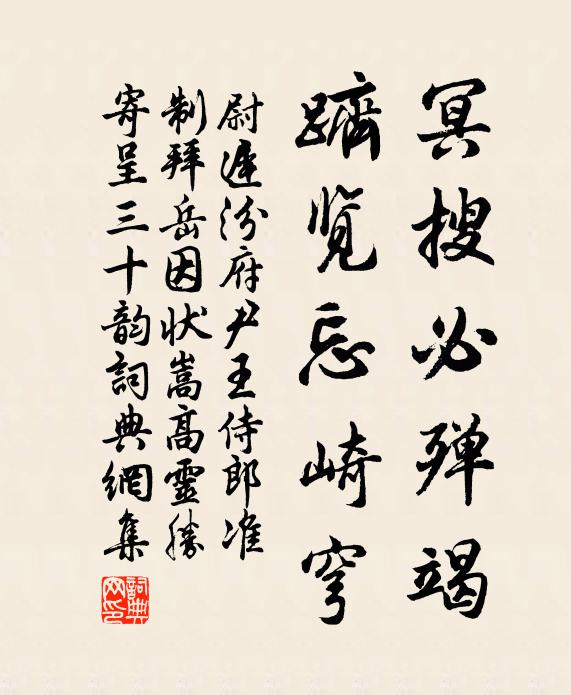 冥搜必殫竭
躋覧忘崎穹
尉遲汾府尹王侍郎准
制拜岳因状嵩高靈勝
寄呈三十韵詞典網集
詞典網印